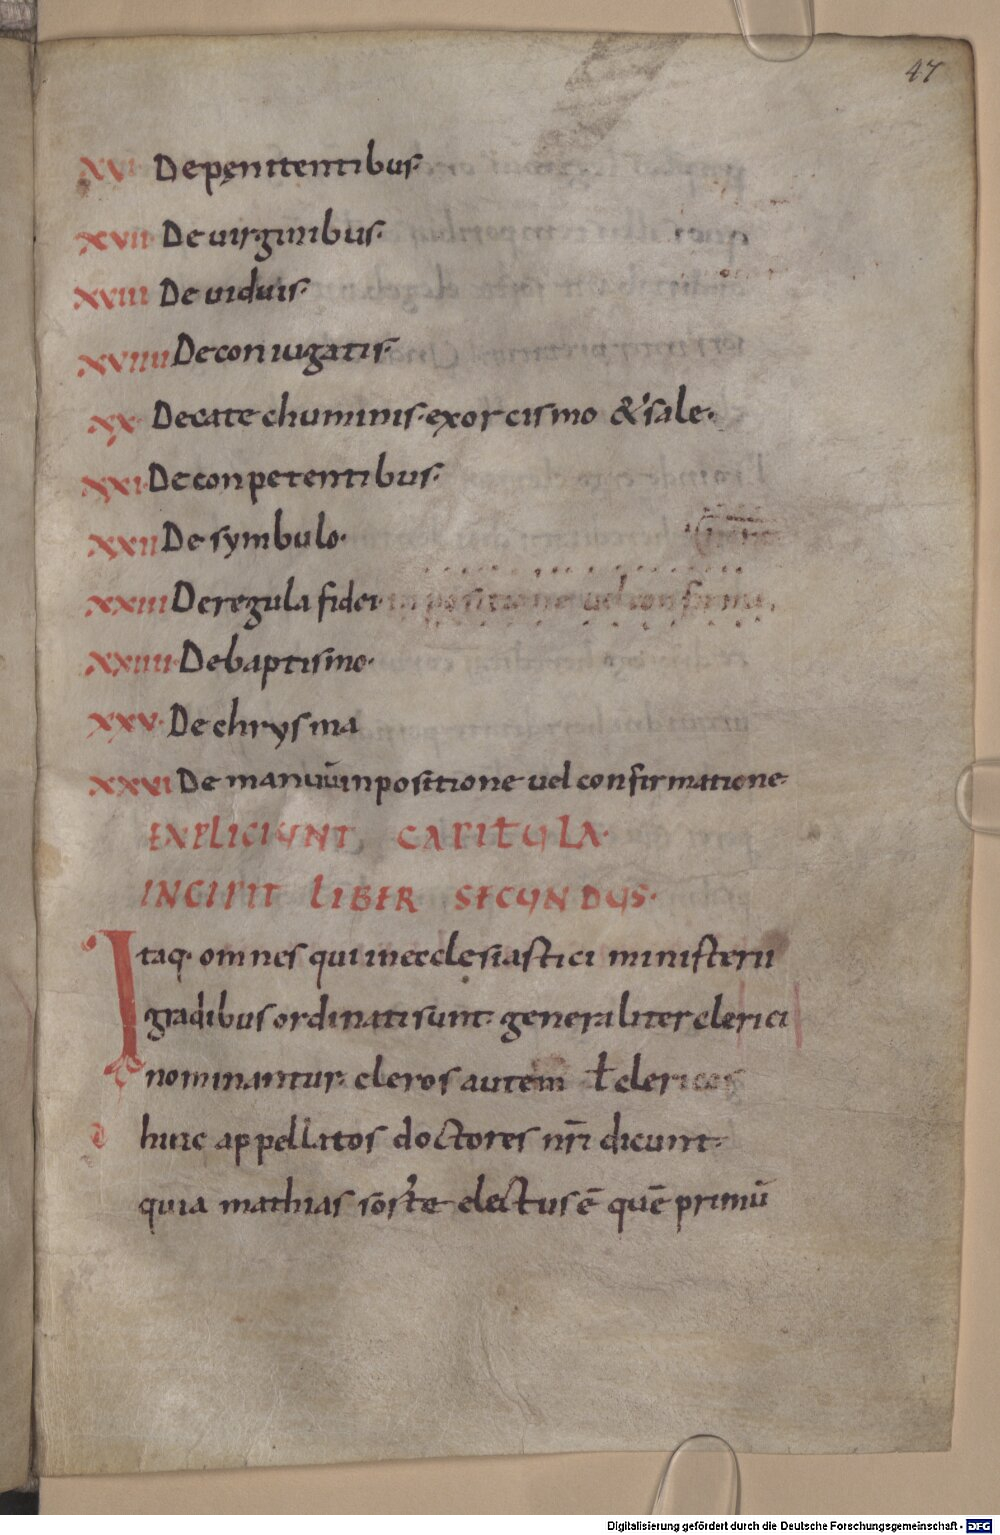 47
XVI De pęnitentibus·
XVII· De uirginibus·
XVIII De uiduis·
XVIIII De coniugatis·
XX· De catechuminis· exorcismo & sale·
XXI· De conpetentibus·
XXII De symbulo·
XXIII De regula fidei inpositione uel confirma
XXIIII· De baptismo·
XXV· De chrysma
XXVI De manuū inpositione uel confirmatione·
EXPLICIUNT CAPITULA·
INCIPIT LIBER SECUNDUS·
Itaq· omnes qui in ecclesiastici ministerii
gradibus ordinati sunt· generaliter clerici
nominantur· cleros autem ł clericos
hinc appellatos doctores nr̄i dicunt·
quia mathias sorte electus ē quē primū
Digitalisierung gefördert durch die Deutsche Forschungsgemeinschaft - DFG